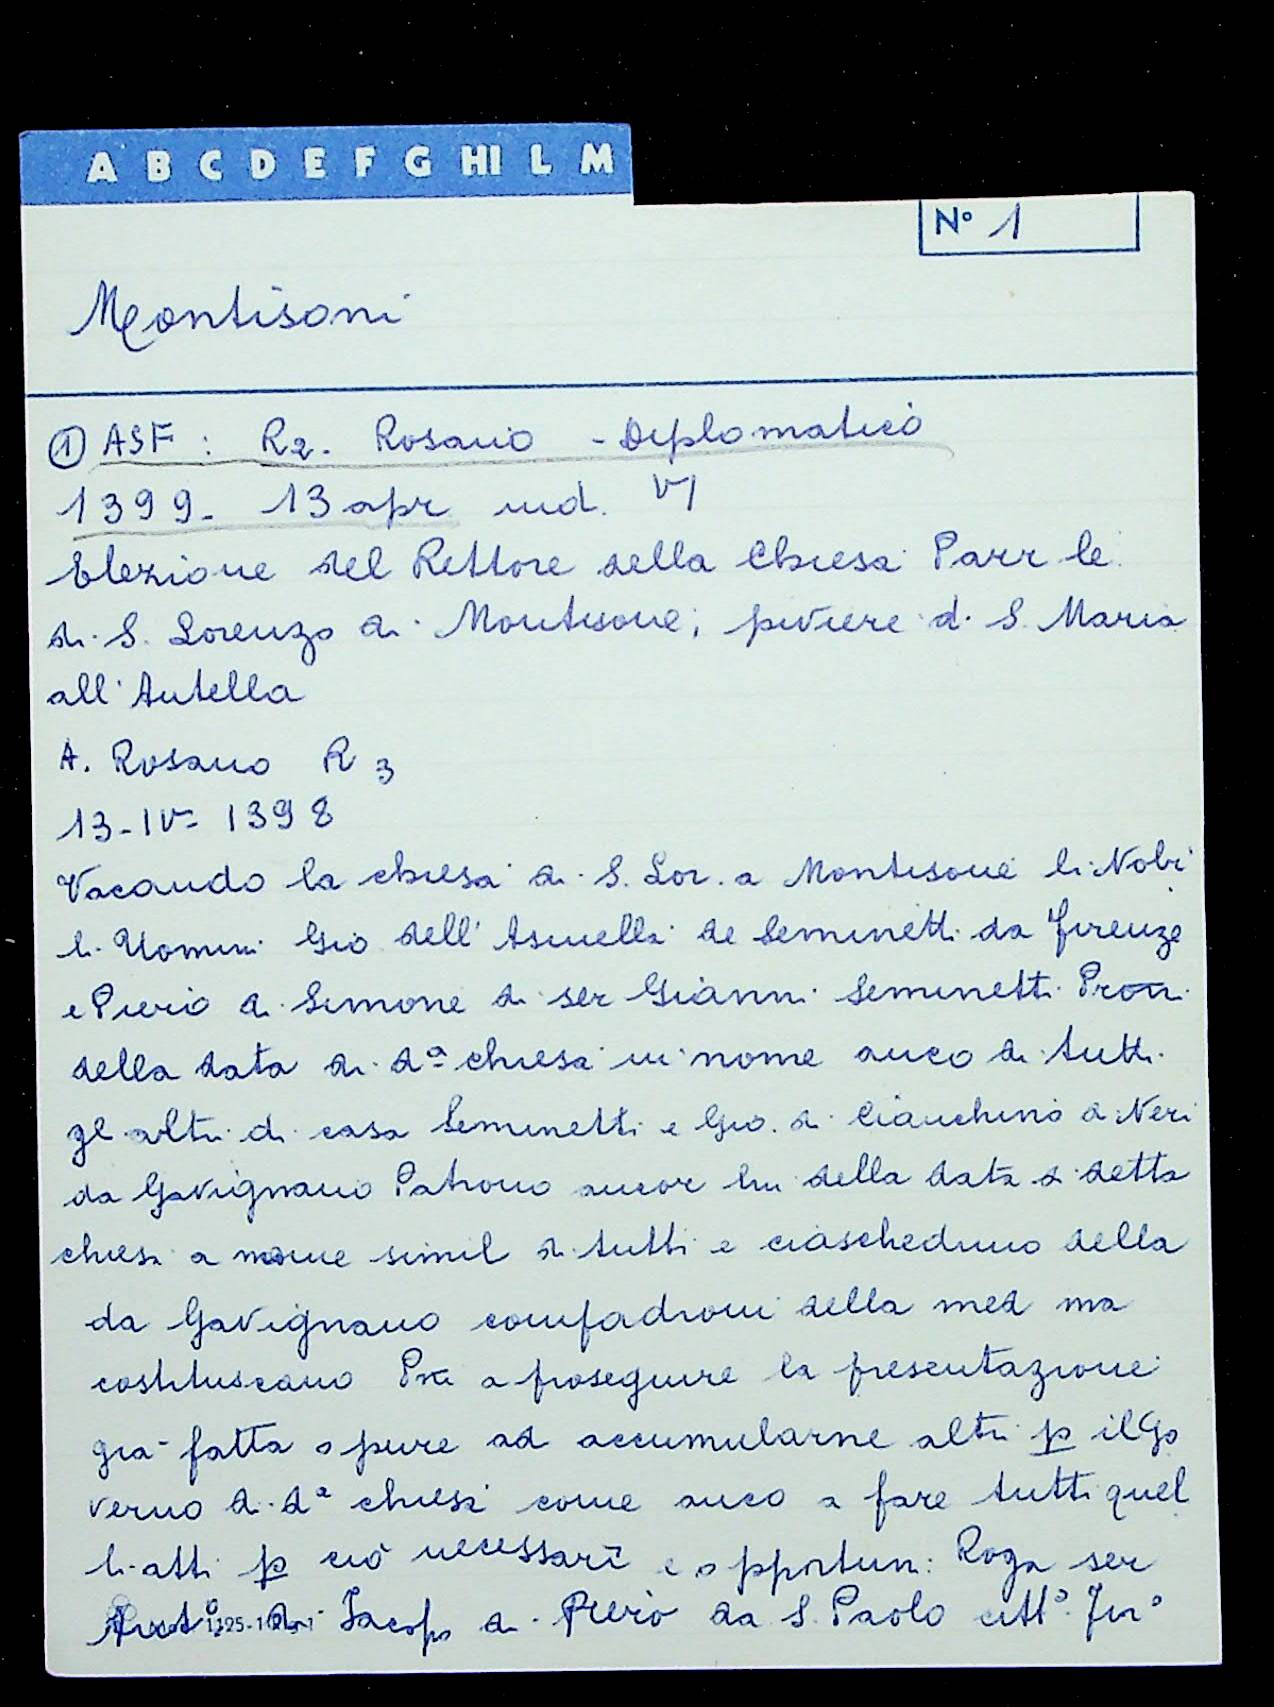 A B C D E F G HI L M
N° 1
Montisoni
① ASF: R2. Rosano - Diplomatico
1399- 13 apr ind. VI
Elezione del Rettore della Chiesa Parr le
di S. Lorenzo a Montisone; piviere di S. Maria
all'Antella
A. Rosano R 3
13-IV- 1398
Vacando la chiesa di S. Lor. a Montisone li Nobi
li Uomini Gio dell'Asinella de Seminetti da Firenze
e Piero di Simone di ser Gianni Seminetti
della data di dª chiesa in nome anco di tutti
gl altri di casa Seminetti e Gio. di Cianchino di Neri
da Gavignano Patrono ancor lui della data di detta
chiesa a nome simil di tutti e ciascheduno della
da Gavignano compadroni della med ma
costituiscano a proseguire la presentazione
gia fatta o pure ad accumularne altri p il Go
verno di dª chiesa come anco a fare tutti quel
li atti p ciò necessari e opportuni: Roga ser
Jacopo di Piero da S. Paolo citt°